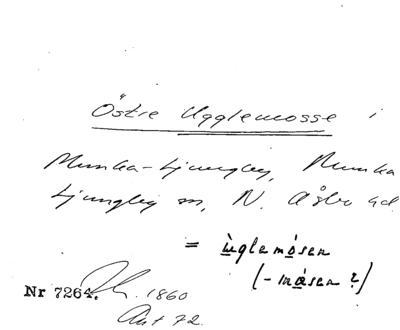 Östre Ugglemosse i
Munka-Ljungby, Munka
Ljungby sn, N. Åsbo hd.
= ùglemósen
(-måsen ?)
Nr 7264. 1860
Avt 72.